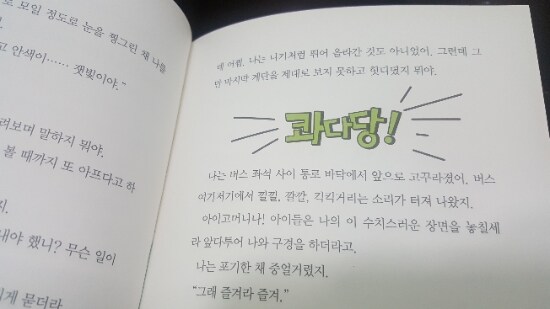 로 모임 정도로 눈을 찡그린 채 나를
고 안색이…… 잿빛이야.”
려보며 말하지 뭐야.
볼 때까지 또 아프다고 하
지.
내야 했니? 무슨 일이
게 묻더라
나는 니키처럼 뛰어 올라간 것도 아니었어. 그런데 그
만 마지막 계단을 제대로 보지 못하고 헛디뎠지 뭐야.
콰다당!
나는 버스 좌석 사이 통로 바닥에서 앞으로 고꾸라졌어. 버스
여기저기에서 낄낄, 깔깔, 킥킥거리는 소리가 터져 나왔지.
아이고머니나! 아이들은 나의 이 수치스러운 장면을 놓칠세
라 앞다투어 나와 구경을 하더라고.
나는 포기한 채 중얼거렸지.
“그래 즐겨라 즐겨.”